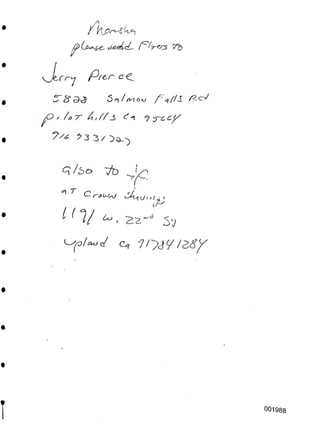 Marsha
please send Flyers to
Jerry Pierce
5820 Salmon Falls Rd
Pilot hills Ca 95664
916 933 1727
also to JC
AT Crown
1191 W. 22nd St
upland Ca 91784 1284
001988